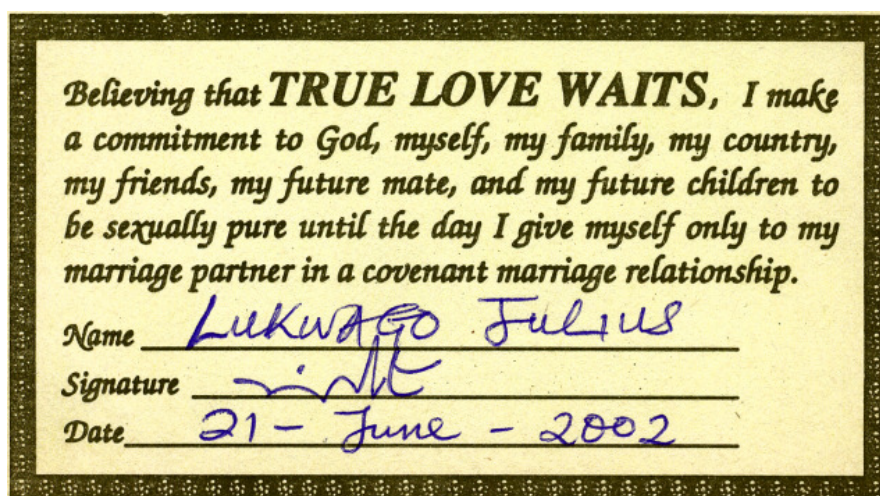 Believing that TRUE LOVE WAITS, I make
a commitment to God, myself, my family, my country,
my friends, my future mate, and my future children to
be sexually pure until the day I give myself only to my
marriage partner in a covenant marriage relationship.
Name LUKWAGO JULIUS
Signature
Date 21 - June - 2002